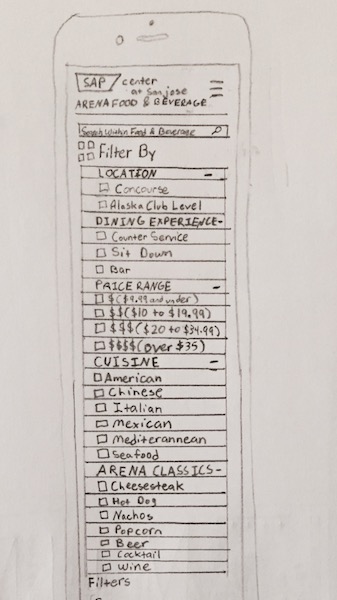 SAP center
at San jose
ARENA FOOD & BEVERAGE
Search Within Food & Beverage
Filter By
LOCATION -
Concourse
Alaska Club Level
DINING EXPERIENCE-
Counter Service
Sit Down
Bar
PRICE RANGE -
$ ($9.99 and under)
$$($10 to $19.99)
$$$($20 to $34.99)
$$$$(over $35)
CUISINE -
American
Chinese
Italian
Mexican
Mediterannean
Seafood
ARENA CLASSICS-
Cheesesteak
Hot Dog
Nachos
Popcorn
Beer
Cocktail
Wine
Filters